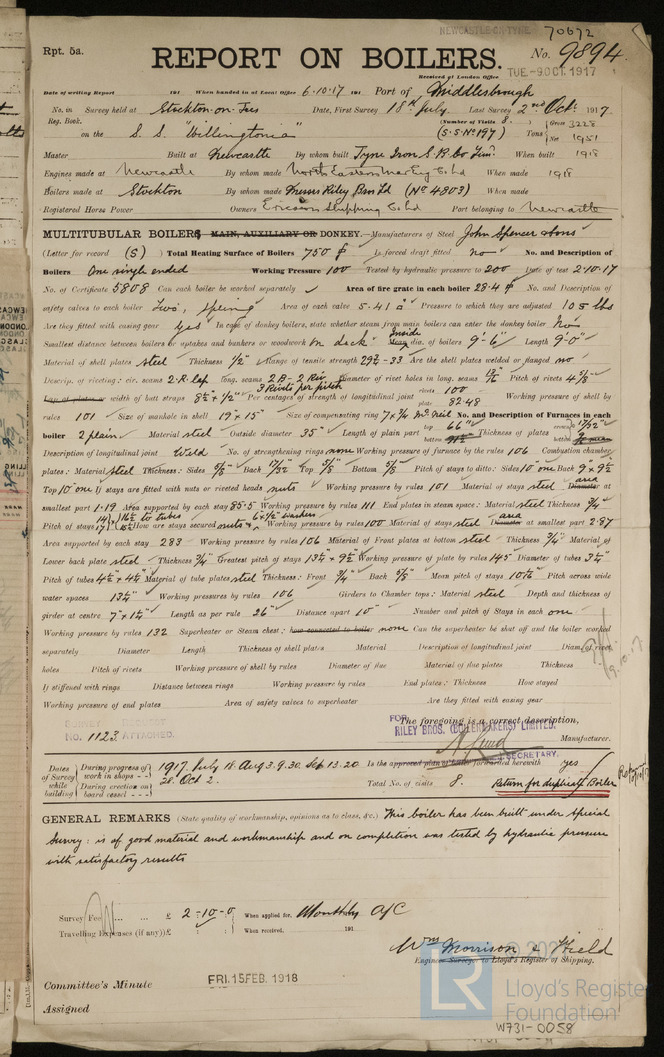 NEWCASTLE-ON-TYNE 70672
Rpt. 5a.
REPORT ON BOILERS.
No. 9894
Received at London Office TUE-9 OCT 1917
Date of writing Report 191 When handed in at Local Office 6-10-17 191 Port of Middlesbrough
No. in Survey held at Stockton-on-Tees Date, First Survey 18th July Last Survey 2nd Oct: 1917
Reg. Book. (Number of Visits 8.)
on the S.S. "Willingtonia" (S.S No 197) Tons Gross 3228 Net 1951
Master Built at Newcastle By whom built Tyne Iron S.B. Co Lim. When built 1918
Engines made at Newcastle By whom made North Eastern Marine Eng Co Ltd When made 1918
Boilers made at Stockton By whom made Messrs Riley Bros Ltd (No 4803) When made
Registered Horse Power Owners Ericsson Shipping Co Ltd Port belonging to Newcastle
MULTITUBULAR BOILERS MAIN, AUXILIARY OR DONKEY.—Manufacturers of Steel John Spencer & Sons
(Letter for record (S) ) Total Heating Surface of Boilers 750 Is forced draft fitted no No. and Description of
Boilers One single ended Working Pressure 100 Tested by hydraulic pressure to 200 Date of test 2.10.17
No. of Certificate 5808 Can each boiler be worked separately Area of fire grate in each boiler 28.4 No. and Description of
safety valves to each boiler Two, spring Area of each valve 5.41 Pressure to which they are adjusted 105 lbs
Are they fitted with easing gear yes In case of donkey boilers, state whether steam from main boilers can enter the donkey boiler No
Smallest distance between boilers or uptakes and bunkers or woodwork on deck Inside dia. of boilers 9'-6" Length 9'-0"
Material of shell plates steel Thickness 1/2" Range of tensile strength 29½-33 Are the shell plates welded or flanged no
Descrip. of riveting: cir. seams 2.R.lap long. seams 2 B-2 Riv 3 Rivets per pitch Diameter of rivet holes in long. seams 13/16 Pitch of rivets 4 5/8
Lap of plates or width of butt straps 8½ x ½" Per centages of strength of longitudinal joint rivets 100 plate 82.48 Working pressure of shell by
rules 101 Size of manhole in shell 19 x 15" Size of compensating ring 7 x ¾ No. and Description of Furnaces in each
boiler 2 plain Material steel Outside diameter 35" Length of plain part top 66" bottom Thickness of plates crown 17/32" bottom
Description of longitudinal joint Weld No. of strengthening rings none Working pressure of furnace by the rules 106 Combustion chamber
plates: Material steel Thickness: Sides 5/8 Back 17/32 Top 5/8 Bottom 5/8 Pitch of stays to ditto: Sides 10" one Back 9 x 9½
Top 10" one If stays are fitted with nuts or riveted heads nuts Working pressure by rules 101 Material of stays steel area Diameter at
smallest part 1.19 Area supported by each stay 85.5 Working pressure by rules 111 End plates in steam space: Material steel Thickness ¾"
Pitch of stays How are stays secured nuts & 6 x ½" washers Working pressure by rules 100 Material of stays steel area Diameter at smallest part 2.87
Area supported by each stay 283 Working pressure by rules 106 Material of Front plates at bottom steel Thickness ¾" Material of
Lower back plate steel Thickness ¾" Greatest pitch of stays 13½ x 9½ Working pressure of plate by rules 145 Diameter of tubes 3¼"
Pitch of tubes 4½ x 4½" Material of tube plates steel Thickness: Front ¾" Back 5/8" Mean pitch of stays 10 1/16 Pitch across wide
water spaces 13½" Working pressures by rules 106 Girders to Chamber tops: Material steel Depth and thickness of
girder at centre 7" x 1½" Length as per rule 26" Distance apart 10" Number and pitch of Stays in each one
Working pressure by rules 132 Superheater or Steam chest; how connected to boiler none Can the superheater be shut off and the boiler worked
separately Diameter Length Thickness of shell plates Material Description of longitudinal joint Diam. of rivet
holes Pitch of rivets Working pressure of shell by rules Diameter of flue Material of flue plates Thickness
If stiffened with rings Distance between rings Working pressure by rules End plates: Thickness How stayed
Working pressure of end plates Area of safety valves to superheater Are they fitted with easing gear
SURVEY REQUEST
NO. 1123 ATTACHED.
The foregoing is a correct description,
FOR RILEY BROS. (BOILERMAKERS) LIMITED.
Manufacturer.
SECRETARY.
Dates of Survey while building
During progress of work in shops - - 1917. July 18. Aug 3.9.30. Sep 13.20. Is the approved plan of boiler forwarded herewith yes
During erection on board vessel - - - 28. Oct 2. Total No. of visits 8. Return for duplicate Boiler
GENERAL REMARKS (State quality of workmanship, opinions as to class, &c.) This boiler has been built under special
survey: is of good material and workmanship and on completion was tested by hydraulic pressure
with satisfactory results
Survey Fee ... ... £ 2-10-0 When applied for, Monthly A/C
Travelling Expenses (if any) £ : : When received, 191
Wm Morrison & Field
Engineer Surveyor to Lloyd's Register of Shipping.
Committee's Minute FRI. 15 FEB. 1918
Assigned
LR Lloyd's Register Foundation
W731-0058